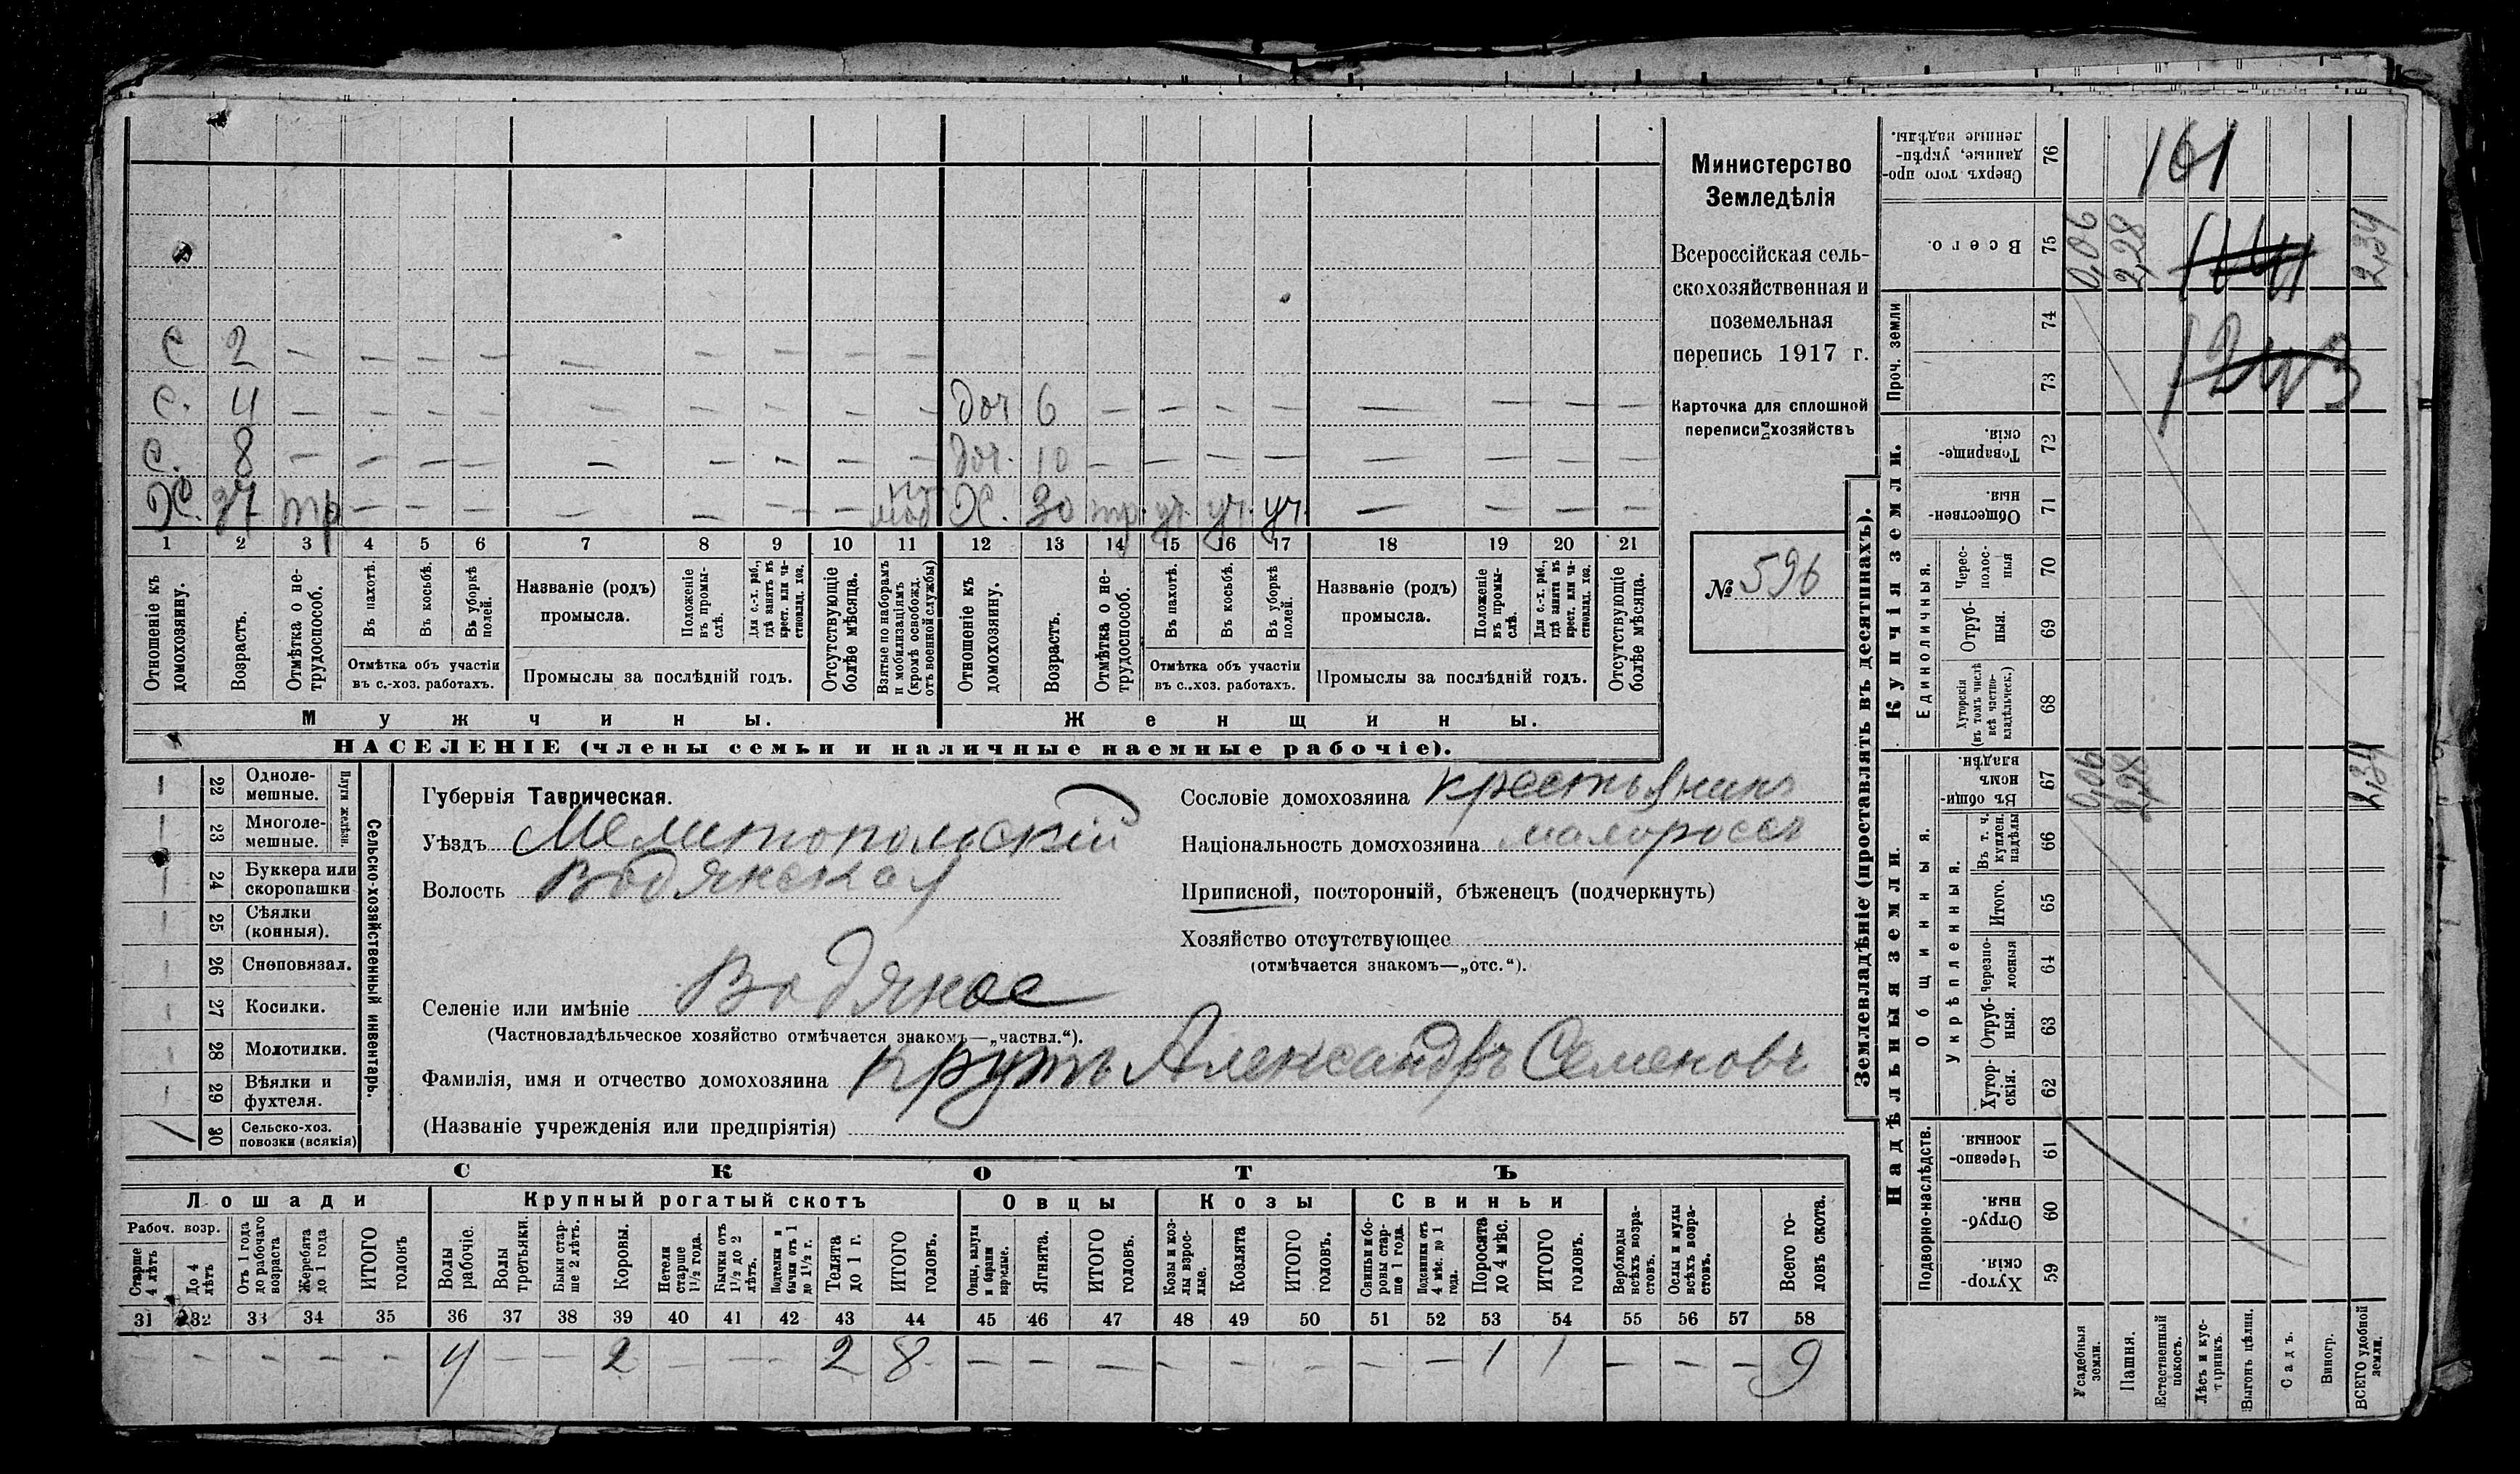 Министерство
Земледѣлія
Всероссійская сель-
скохозяйственная и
поземельная
перепись 1917 г.
Карточка для сплошной
переписи хозяйствъ
№ 596
С 2 — — — — — — — — —
С. 4 — — — — — — — — — Доч 6 — — — — — — — —
С. 8 — — — — — — — — — Доч. 10 — — — — — — — —
Х. 37 тр — — — — — — — моб Х. 30 тр. уч. уч. уч. — — — —
1 2 3 4 5 6 7 8 9 10 11 12 13 14 15 16 17 18 19 20 21
Отношеніе къ домохозяину.
Возрастъ.
Отмѣтка о не-трудоспособ.
Въ пахотѣ.
Въ косьбѣ.
Въ уборкѣ полей.
Отмѣтка объ участіи
въ с.-хоз. работахъ.
Названіе (родъ)
промысла.
Положеніе въ промы-слѣ.
Для с.-х. раб., гдѣ занятъ въ крест. или ча-стновлад. хоз.
Промыслы за послѣдній годъ.
Отсутствующіе болѣе мѣсяца.
Взятые по наборамъ и мобилизаціямъ (кромѣ освобожд. отъ военной службы)
Отношеніе къ домохозяину.
Возрастъ.
Отмѣтка о не-трудоспособ.
Въ пахотѣ.
Въ косьбѣ.
Въ уборкѣ полей.
Отмѣтка объ участіи
въ с..хоз. работахъ.
Названіе (родъ)
промысла.
Положеніе въ промы-слѣ.
Для с.-х. раб., гдѣ занята въ крест. или ча-стновлад. хоз.
Промыслы за послѣдній годъ.
Отсутствующіе болѣе мѣсяца.
Мужчины.
Женщины.
НАСЕЛЕНІЕ (члены семьи и наличные наемные рабочіе).
Сельско-хозяйственный инвентарь.
Плуги желѣзн.
22 Одноле-мешные.
23 Многоле-мешные.
24 Буккера или скоропашки
25 Сѣялки (конныя).
26 Сноповязал.
27 Косилки.
28 Молотилки.
29 Вѣялки и фухтеля.
30 Сельско-хоз. повозки (всякія)
Губернія Таврическая.
Уѣздъ Мелитопольскій
Волость Водянская
Селеніе или имѣніе Водяное
(Частновладѣльческое хозяйство отмѣчается знакомъ—„частвл.“).
Фамилія, имя и отчество домохозяина Крутъ Александръ Семеновъ
(Названіе учрежденія или предпріятія)
Сословіе домохозяина крестьянинъ
Національность домохозяина малороссъ
Приписной, посторонній, бѣженецъ (подчеркнуть)
Хозяйство отсутствующее
(отмѣчается знакомъ—„отс.“).
СКОТЪ
Лошади
Крупный рогатый скотъ
Овцы
Козы
Свиньи
Рабоч. возр.
Старше 4 лѣтъ
До 4 лѣтъ
Отъ 1 года до рабочаго возраста
Жеребята до 1 года
ИТОГО головъ
Волы рабочіе.
Волы третьяки.
Быки стар-ше 2 лѣтъ.
Коровы.
Нетели старше 1½ года.
Бычки отъ 1½ до 2 лѣтъ.
Подтелки и бычки отъ 1 до 1½ г.
Телята до 1 г.
ИТОГО головъ.
Овцы, валухи и бараны взрослые.
Ягнята.
ИТОГО головъ.
Козы и коз-лы взрос-лые.
Козлята
ИТОГО головъ.
Свиньи и бо-ровы стар-ше 1 года.
Подсвинки отъ 4 мѣс. до 1 года.
Поросята до 4 мѣс.
ИТОГО головъ.
Верблюды всѣхъ возра-стовъ.
Ослы и мулы всѣхъ возра-стовъ.
Всего го-ловъ скота.
31 32 33 34 35 36 37 38 39 40 41 42 43 44 45 46 47 48 49 50 51 52 53 54 55 56 57 58
— — — — — 4 — — 2 — — — 2 8 — — — — — — — — 1 1 — — — 9
Землевладѣніе (проставлять въ десятинахъ).
Надѣльныя земли.
Купчія земли.
Проч. земли
Подворно-наслѣдств.
Общинныя.
Укрѣпленныя.
Единоличныя.
Сверхъ того про-данные, укрѣп-ленные надѣлы. 76
Всего. 75
74
73
Товарище-скія. 72
Обществен-ныя. 71
Черес-полос-ныя 70
Отруб-ныя. 69
Хуторскія (въ томъ числѣ всѣ частно-владѣльческ.) 68
Въ общи-номъ владѣн. 67
Въ т. ч. куплен. надѣлы 66
Итого. 65
Черезпо-лосныя 64
Отруб-ныя. 63
Хутор-скія. 62
Черезпо-лосныя. 61
Отруб-ныя. 60
Хутор-скія. 59
161
0,06 2,28 2,34
0,06 2,28 2,34
Усадебныя земли.
Пашня.
Естественный покосъ.
Лѣсъ и кус-тарникъ.
Выгонъ цѣлин.
Садъ.
Виногр.
ВСЕГО удобной земли.